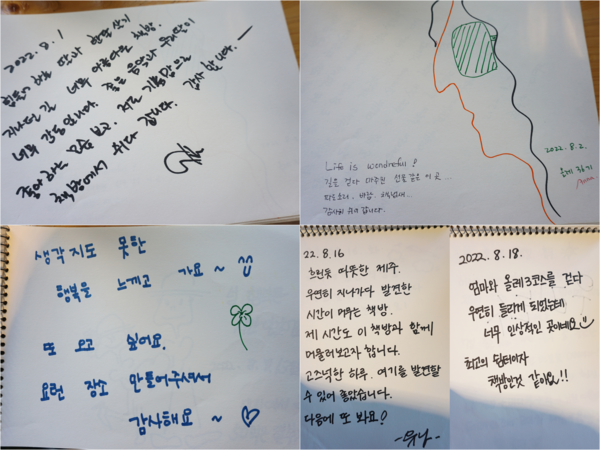 2022. 8. 1
힐링가 하는 딸과 한달살기
지나던 길 너무 아름다운 책방.
너무 감동입니다. 좋은 음악과 우리딸이
좋아하는 모습 보고, 저도 기쁨맘으로
책방에서 쉬다 갑니다. 감사합니다.
Life is wonderful!
길을 걷다 마주친 선물 같은 이 곳...
파도소리, 바람, 책냄새...
감사히 쉬다 갑니다.
2022. 8. 2.
생각지도 못한
행복을 느끼고 가요 ~
또 오고 싶어요.
요런 장소 만들어주셔서
감사해요 ~ ♡
22. 8. 16
흐린듯 따뜻한 제주.
우연히 지나가다 발견한
시간이 머무는 책방.
제 시간도 이 책방과 함께
머물러보고자 합니다.
고즈넉한 하루. 여기를 발견할
수 있어 좋았습니다.
다음에 또 봐요?
2022. 8. 18.
엄마와 올레 3코스를 걷다
우연히 들리게 되었는데
너무 인상적인 곳이네요
최고의 쉼터이자
책방인것 같아요!!